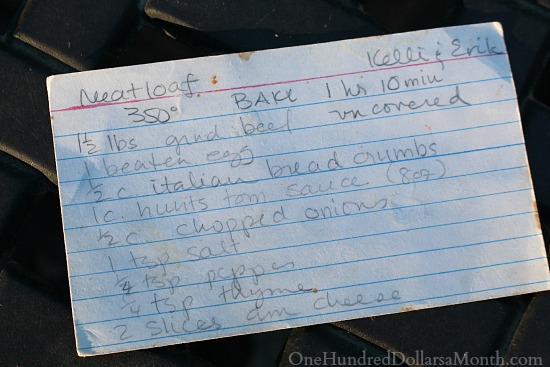 Meatloaf: Kelli & Erik
350° BAKE 1 hr 10 min
uncovered
1½ lbs grnd beef
1 beaten egg
½ c. italian bread crumbs
1 c. hunts tom sauce (8oz)
½ c. chopped onions
1 tsp salt
¼ tsp pepper
¼ tsp thyme
2 slices am cheese
OneHundredDollarsaMonth.com